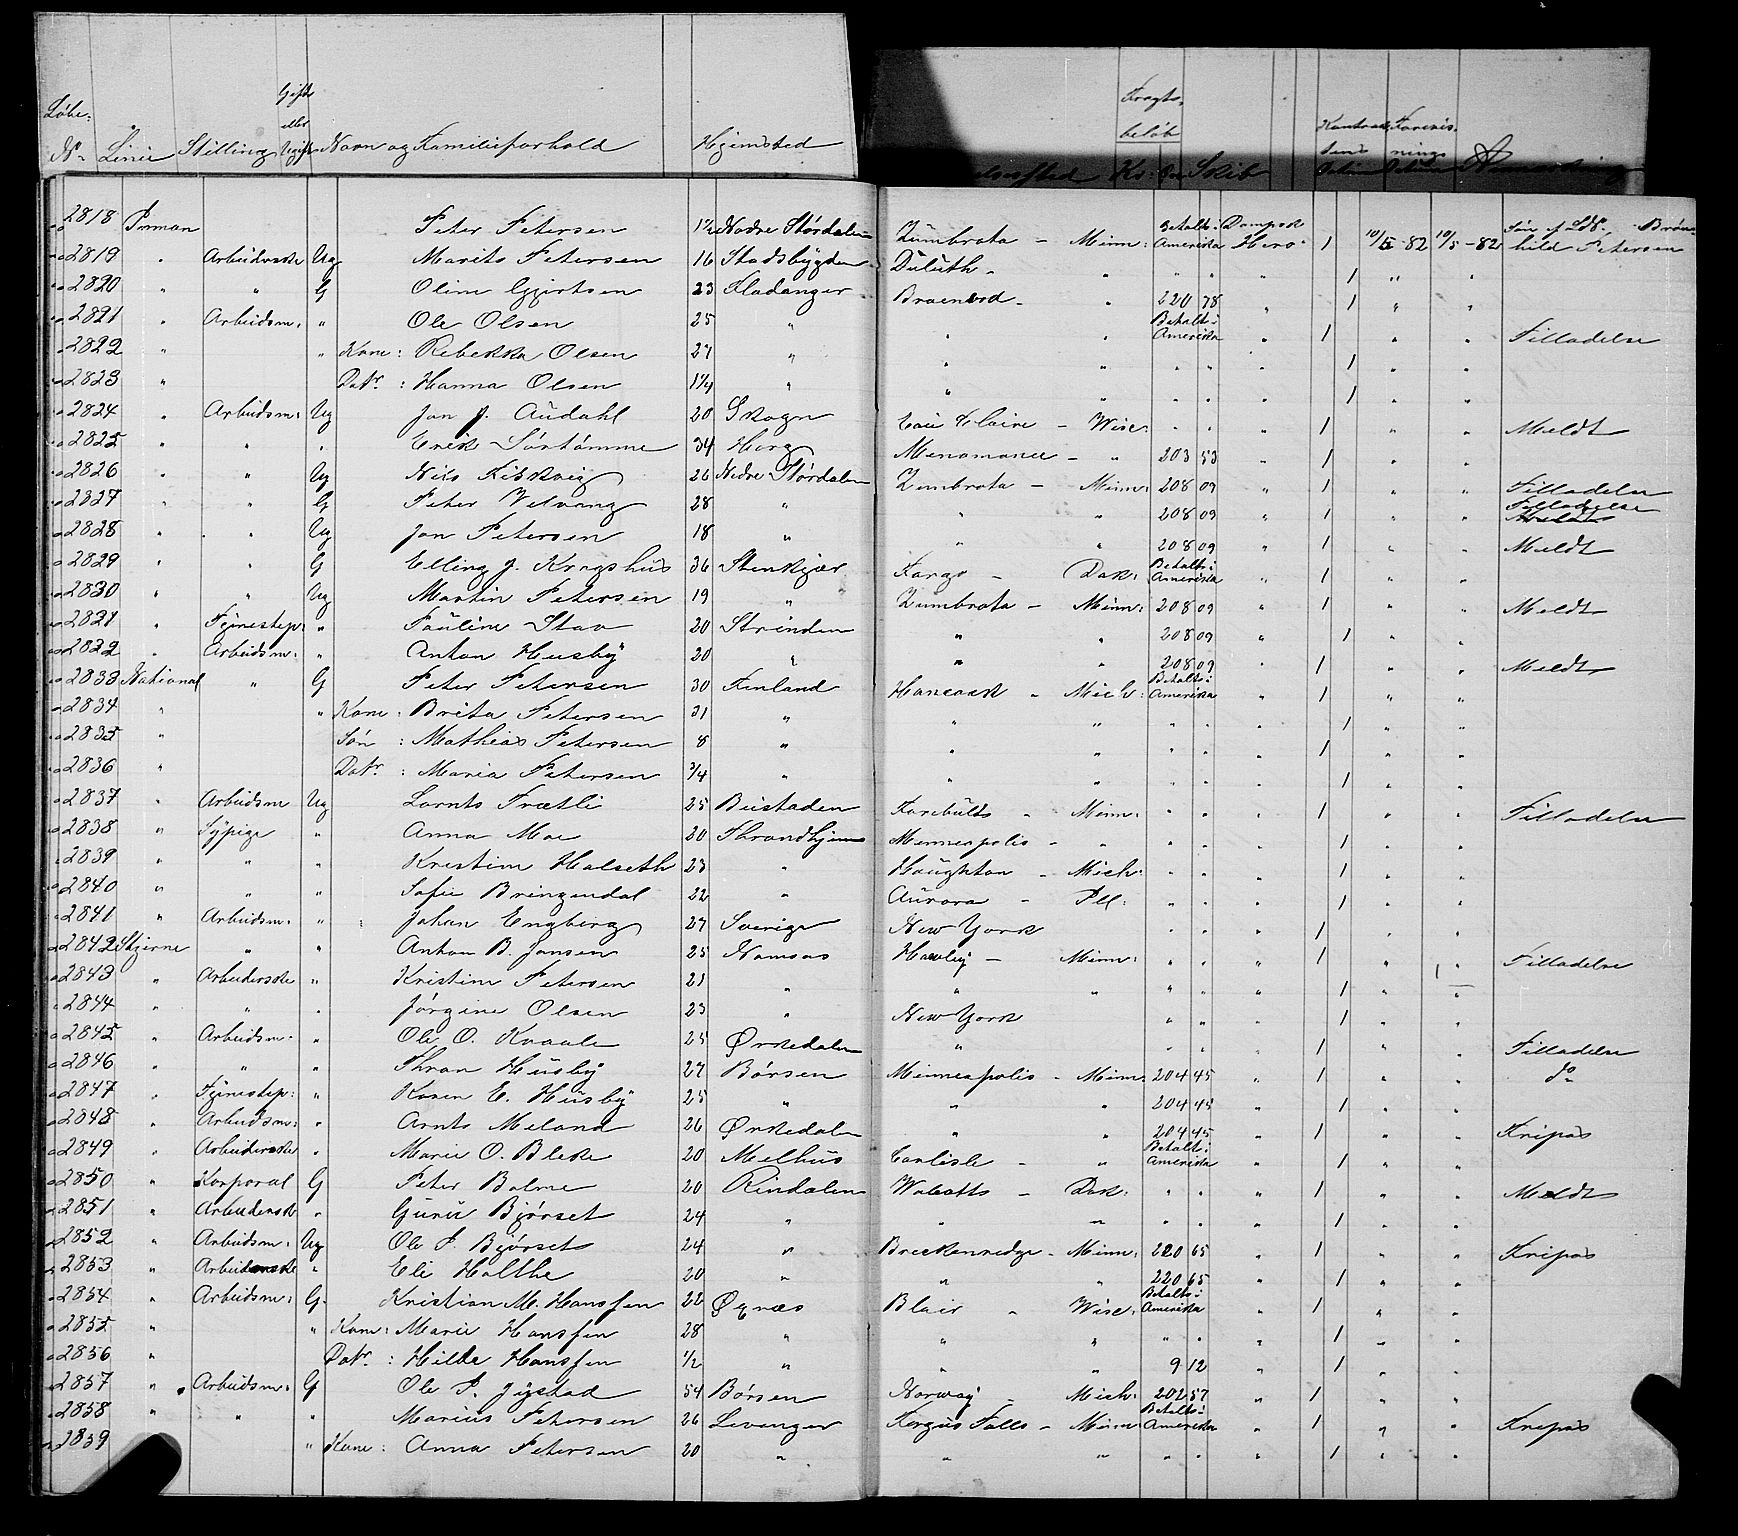 Løbe- No. Linie Stilling Gift eller Ugift Navn og Familieforhold Hjemsted Fragtbeløb Kr. Skib Anmærkning
2818 Inman Peter Petersen 1½ Nedre Størdalen Zumbrota - Minn: Betalt i Amerika Dampsk Hero 1 10/5 -82 10/5 -82 Petersen
2819 " Arbeiderske Ug Marits Petersen 16 Stadsbygden Duluth - " " " " 1 " "
2820 " " G Oline Gjertsen 23 Fladanger Brainerd - " 220 78 " 1 " "
2821 " Arbeidsm: " Ole Olsen 25 " " " Betalt i Amerika " 1 " " Tilladelse
2822 " " Kone: Rebekka Olsen 27 " " " " " " 1 " "
2823 " Datr: Hanna Olsen 1¼ " " " " " " 1 " "
2824 " Arbeidsm: Ug Jon J. Audahl 20 Skogn Eau Claire - Wisc: " " " 1 " " Meldt
2825 " " " Erik Sørtømme 34 Horg Menomonee - " 203 53 " 1 " "
2826 " " Ug Nils Fiskvig 26 Nedre Størdalen Zumbrota - Minn: 208 09 " 1 " " Tilladelse
2827 " " G Peter Velvang 28 " " " 208 09 " 1 " " Tilladelse
2828 " " Ug Jon Petersen 18 " " " 208 09 " 1 " " Meldt
2829 " " G Elling J. Krogshus 36 Stenkjær Fargo - Dak: Betalt i Amerika " 1 " "
2830 " " Ug Martin Petersen 19 " Zumbrota - Minn: 208 09 " 1 " " Meldt
2831 " Tjenestep: " Pauline Stav 20 Strinden " " 208 09 " 1 " "
2832 " Arbeidsm: " Anton Husby 20 " " " 208 09 " 1 " " Meldt
2833 National " G Peter Petersen 30 Finland Hancock - Mich: Betalt i Amerika " 1 " "
2834 " " Kone: Brita Petersen 31 " " " " " " 1 " "
2835 " Søn: Mathias Petersen 8 " " " " " " 1 " "
2836 " Datr: Maria Petersen 3/4 " " " " " " 1 " "
2837 " Arbeidsm Ug Lornts Prætli 25 Beistaden Faribults " Minn: " " " 1 " " Tilladelse
2838 " Sypige " Anna Moe 20 Throndhjem Minneapolis - " " " " 1 " "
2839 " " " Kristine Halseth 23 " Houghton - Mich: " " " 1 " "
2840 " " " Sofie Bringendal 22 " Aurora - Ill: " " " 1 " "
2841 " Arbeidsm: " Johan Engberg 27 Sverige New York " " " 1 " "
2842 Stjerne " " Anton B. Jansen 25 Namsos Hawley - Minn: " " " 1 " " Tilladelse
2843 " Arbeiderske " Kristine Petersen 21 " " " " " " 1 " "
2844 " " " Jørgine Olsen 23 " New York " " " 1 " "
2845 " Arbeidsm: " Ole O. Kvaale 25 Ørkedalen " " " " 1 " " Tilladelse
2846 " " " Thran Husby 27 Børsen Minneapolis - Minn: 204 45 " 1 " " do
2847 " Tjenestep: " Karen E. Husby 25 " " " 204 45 " 1 " "
2848 " Arbeidsm: " Arnts Meland 26 Ørkedalen " " 204 45 " 1 " " Fripas
2849 " Arbeiderske " Marie O. Bleke 20 Melhus Carlisle - " Betalt i Amerika " 1 " "
2850 " Korporal G Peter Bolme 20 Rindalen Walcotts - Dak: " " " 1 " " Meldt
2851 " Arbeiderske " Guru Bjørset 24 " " " " " " 1 " "
2852 " Arbeidsm: Ug Ole P. Bjørset 24 " Breckenredge - Minn: 220 65 " 1 " " Fripas
2853 " Arbeiderske " Eli Holthe 20 " " " 220 65 " 1 " "
2854 " Arbeidsm: G. Kristian M. Hanssen 22 Øynæs Blair " Wisc: Betalt i Amerika " 1 " "
2855 " " Kone: Marie Hanssen 28 " " " " " " 1 " "
2856 " Datr: Hilda Hanssen ½ " " " 9 12 " 1 " "
2857 " Arbeidsm: G Ole P. Jystad 54 Børsen Norway - Mich: 202 57 " 1 " "
2858 " " " Marius Petersen 26 Levanger Fergus Falls - Minn Betalt i Amerika " 1 " " Fripas
2859 " Kone: Anna Petersen 20 " " " " " " 1 " "